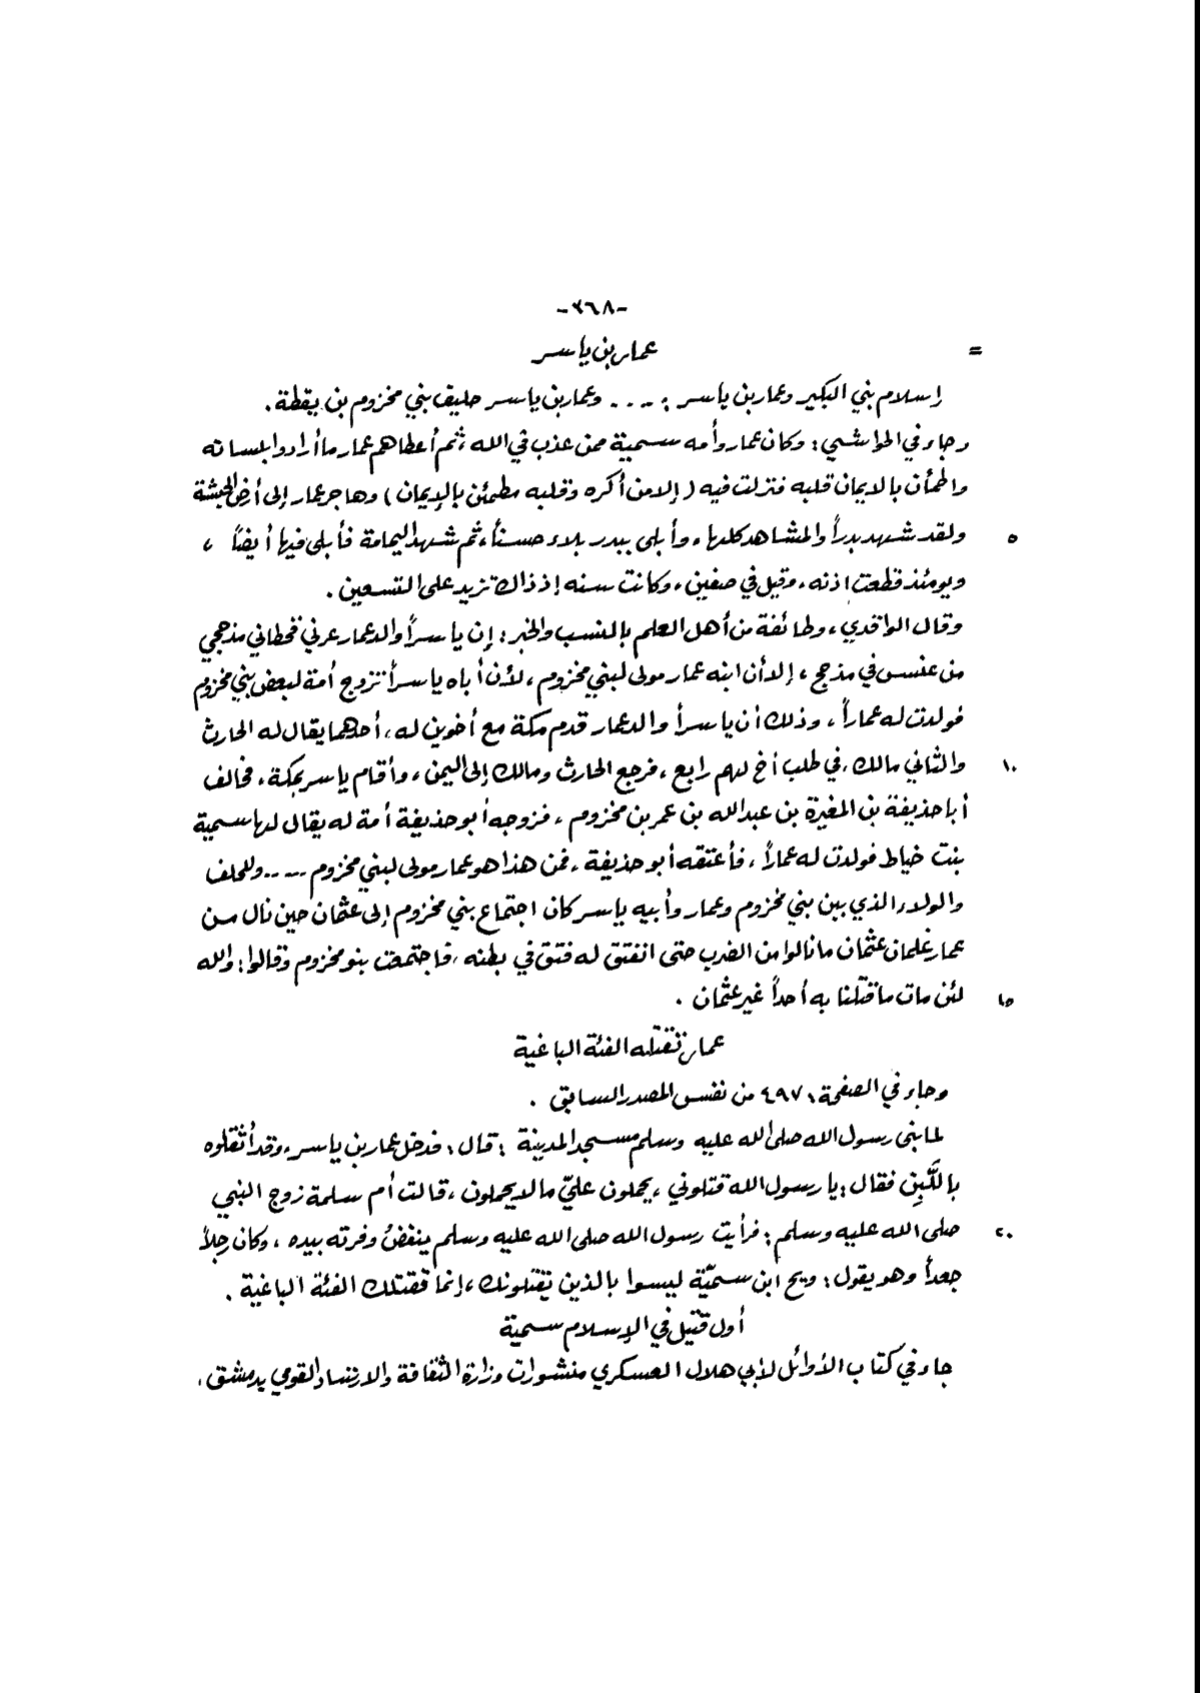 -٣٦٨-
= عمار بن ياسر
إسلام بني البكير وعمار بن ياسر : .... وعمار بن ياسر حليف بني مخزوم بن يقظة .
وجاء في الحواشي : وكان عمار وأمه سمية ممن عذب في الله ، ثم أعطاهم عمار ما أرادوا بلسانه
واطمأن بالايمان قلبه فنزلت فيه ( إلا من أكره وقلبه مطمئن بالإيمان ) وهاجر عمار إلى أرض الحبشة
٥ ولقد شهد بدراً والمشاهد كلها ، وأبلى ببدر بلاء حسناً ، ثم شهد اليمامة فأبلى فيها أيضاً ،
ويومئذ قطعت اذنه ، وقيل في صفين ، وكانت سنه إذ ذاك تزيد على التسعين .
وقال الواقدي ، وطائفة من أهل العلم بالنسب والخبر : إن ياسراً والد عمار عرني قحطاني مذحجي
من عنس في مذحج ، إلا أن ابنه عمار مولى لبني مخزوم ، لأن أباه ياسراً تزوج أمة لبعض بني مخزوم
فولدت له عماراً ، وذلك أن ياسراً والد عمار قدم مكة مع أخوين له ، أحدهما يقال له الحارث
١٠ والثاني مالك ، في طلب أخ لهم رابع ، فرجع الحارث ومالك إلى اليمن ، وأقام ياسر بمكة ، فحالف
أبا حذيفة بن المغيرة بن عبد الله بن عمر بن مخزوم ، فزوجه أبو حذيفة أمة له يقال لها سمية
بنت خياط فولدت له عماراً ، فأعتقه أبو حذيفة ، فمن هذا هو عمار مولى لبني مخزوم .... وللحلف
والولاء الذي بين بني مخزوم وعمار وأبيه ياسر كان اجتماع بني مخزوم إلى عثمان حين نال من
عمار غلمان عثمان ما نالوا من الضرب حتى انفتق له فتق في بطنه ، فاجتمعت بنو مخزوم وقالوا : والله
١٥ لئن مات ما قتلنا به أحداً غير عثمان .
عمار تقتله الفئة الباغية
وجاء في الصفحة ، ٤٩٧ من نفس المصدر السابق .
لما بنى رسول الله صلى الله عليه وسلم مسجد المدينة ؛ قال : فدخل عمار بن ياسر ، وقد أثقلوه
باللَّبِن فقال : يا رسول الله قتلوني ، يحملون عليّ ما لا يحملون ، قالت أم سلمة زوج النبي
٢٠ صلى الله عليه وسلم : فرأيت رسول الله صلى الله عليه وسلم ينفضُ وفرته بيده ، وكان رجلاً
جعداً وهو يقول : ويح ابن سميّة ليسوا بالذين يقتلونك ، إنما تقتلك الفئة الباغية .
أول قتيل في الإسلام سمية
جاء في كتاب الأوائل لأبي هلال العسكري منشورات وزارة الثقافة والارشاد القومي بدمشق ،